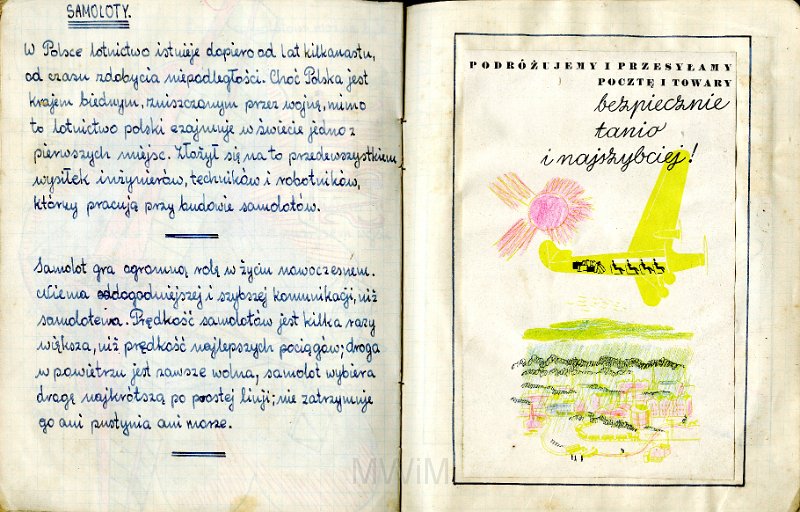 SAMOLOTY.
W Polsce lotnictwo istnieje dopiero od lat kilkanastu,
od czasu zdobycia niepodległości. Choć Polska jest
krajem biednym, zniszczonym przez wojnę, mimo
to lotnictwo polski zajmuje w świecie jedno z
pierwszych miejsc. Złożył się na to przedewszystkiem
wysiłek inżynierów, techników i robotników,
którzy pracują przy budowie samolotów.
Samolot gra ogromną rolę w życiu nowoczesnem.
Niema dogodniejszej i szybszej komunikacji, niż
samolotowa. Prędkość samolotów jest kilka razy
większa, niż prędkość najlepszych pociągów; droga
w powietrzu jest zawsze wolna, samolot wybiera
drogę najkrótszą po prostej linji; nie zatrzymuje
go ani pustynia ani morze.
PODRÓŻUJEMY I PRZESYŁAMY
POCZTĘ I TOWARY
bezpiecznie
tanio
i najszybciej!
MWiM